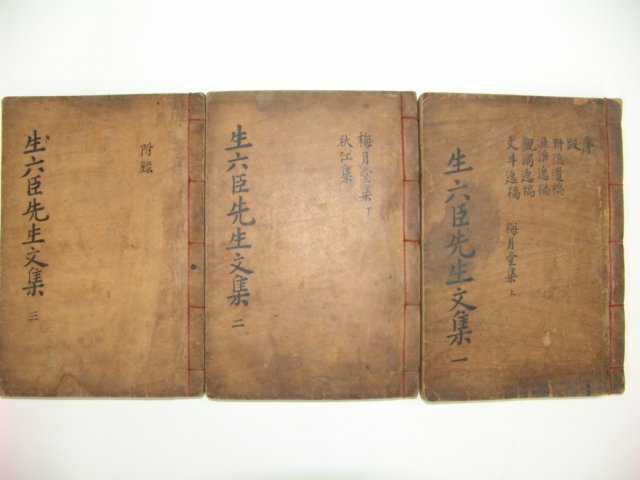 序
跋
耕隱遺稿
漁溪逸稿
觀瀾逸稿
文斗逸稿 梅月堂集 上
生六臣先生文集 一
梅月堂集 下
秋江集
生六臣先生文集 二
附錄
生六臣先生文集 三